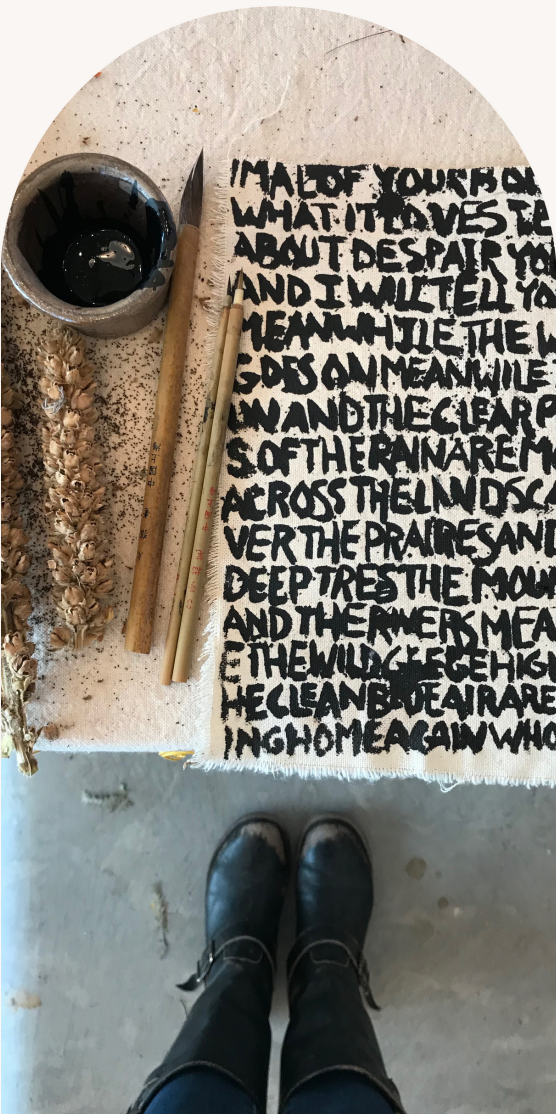 IMAL OF YOUR BO
WHAT IT LOVES TE
ABOUT DESPAIR YO
AND I WILL TELL YO
MEANWHILE THE W
GOES ON MEANWILE
UN AND THE CLEAR P
S OF THE RAIN ARE M
ACROSS THE LANDSCA
VER THE PRAIRIES AN
DEEP TRES THE MOU
AND THE RIVERS MEA
E THE WILD GEESE HIGH
HE CLEAN BLUE AIR ARE
ING HOME AGAIN WHO